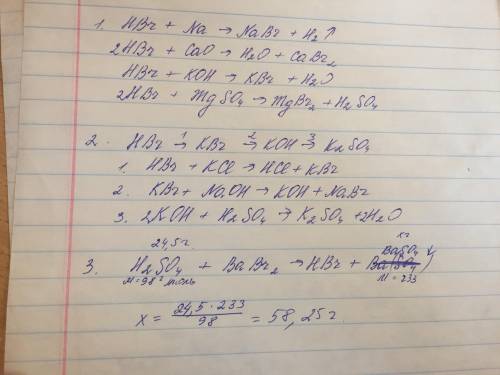 1. HBr + Na → NaBr + H₂↑
2HBr + CaO → H₂O + CaBr₂
HBr + KOH → KBr + H₂O
2HBr + MgSO₄ → MgBr₂ + H₂SO₄
2. HBr →¹ KBr →² KOH →³ K₂SO₄
1. HBr + KCl → HCl + KBr
2. KBr + NaOH → KOH + NaBr
3. 2KOH + H₂SO₄ → K₂SO₄ + 2H₂O
24,5г xг
3. H₂SO₄ + BaBr₂ → HBr + BaSO₄↓
M=98г/моль M=233
x = 24,5·233/98 = 58,25г.